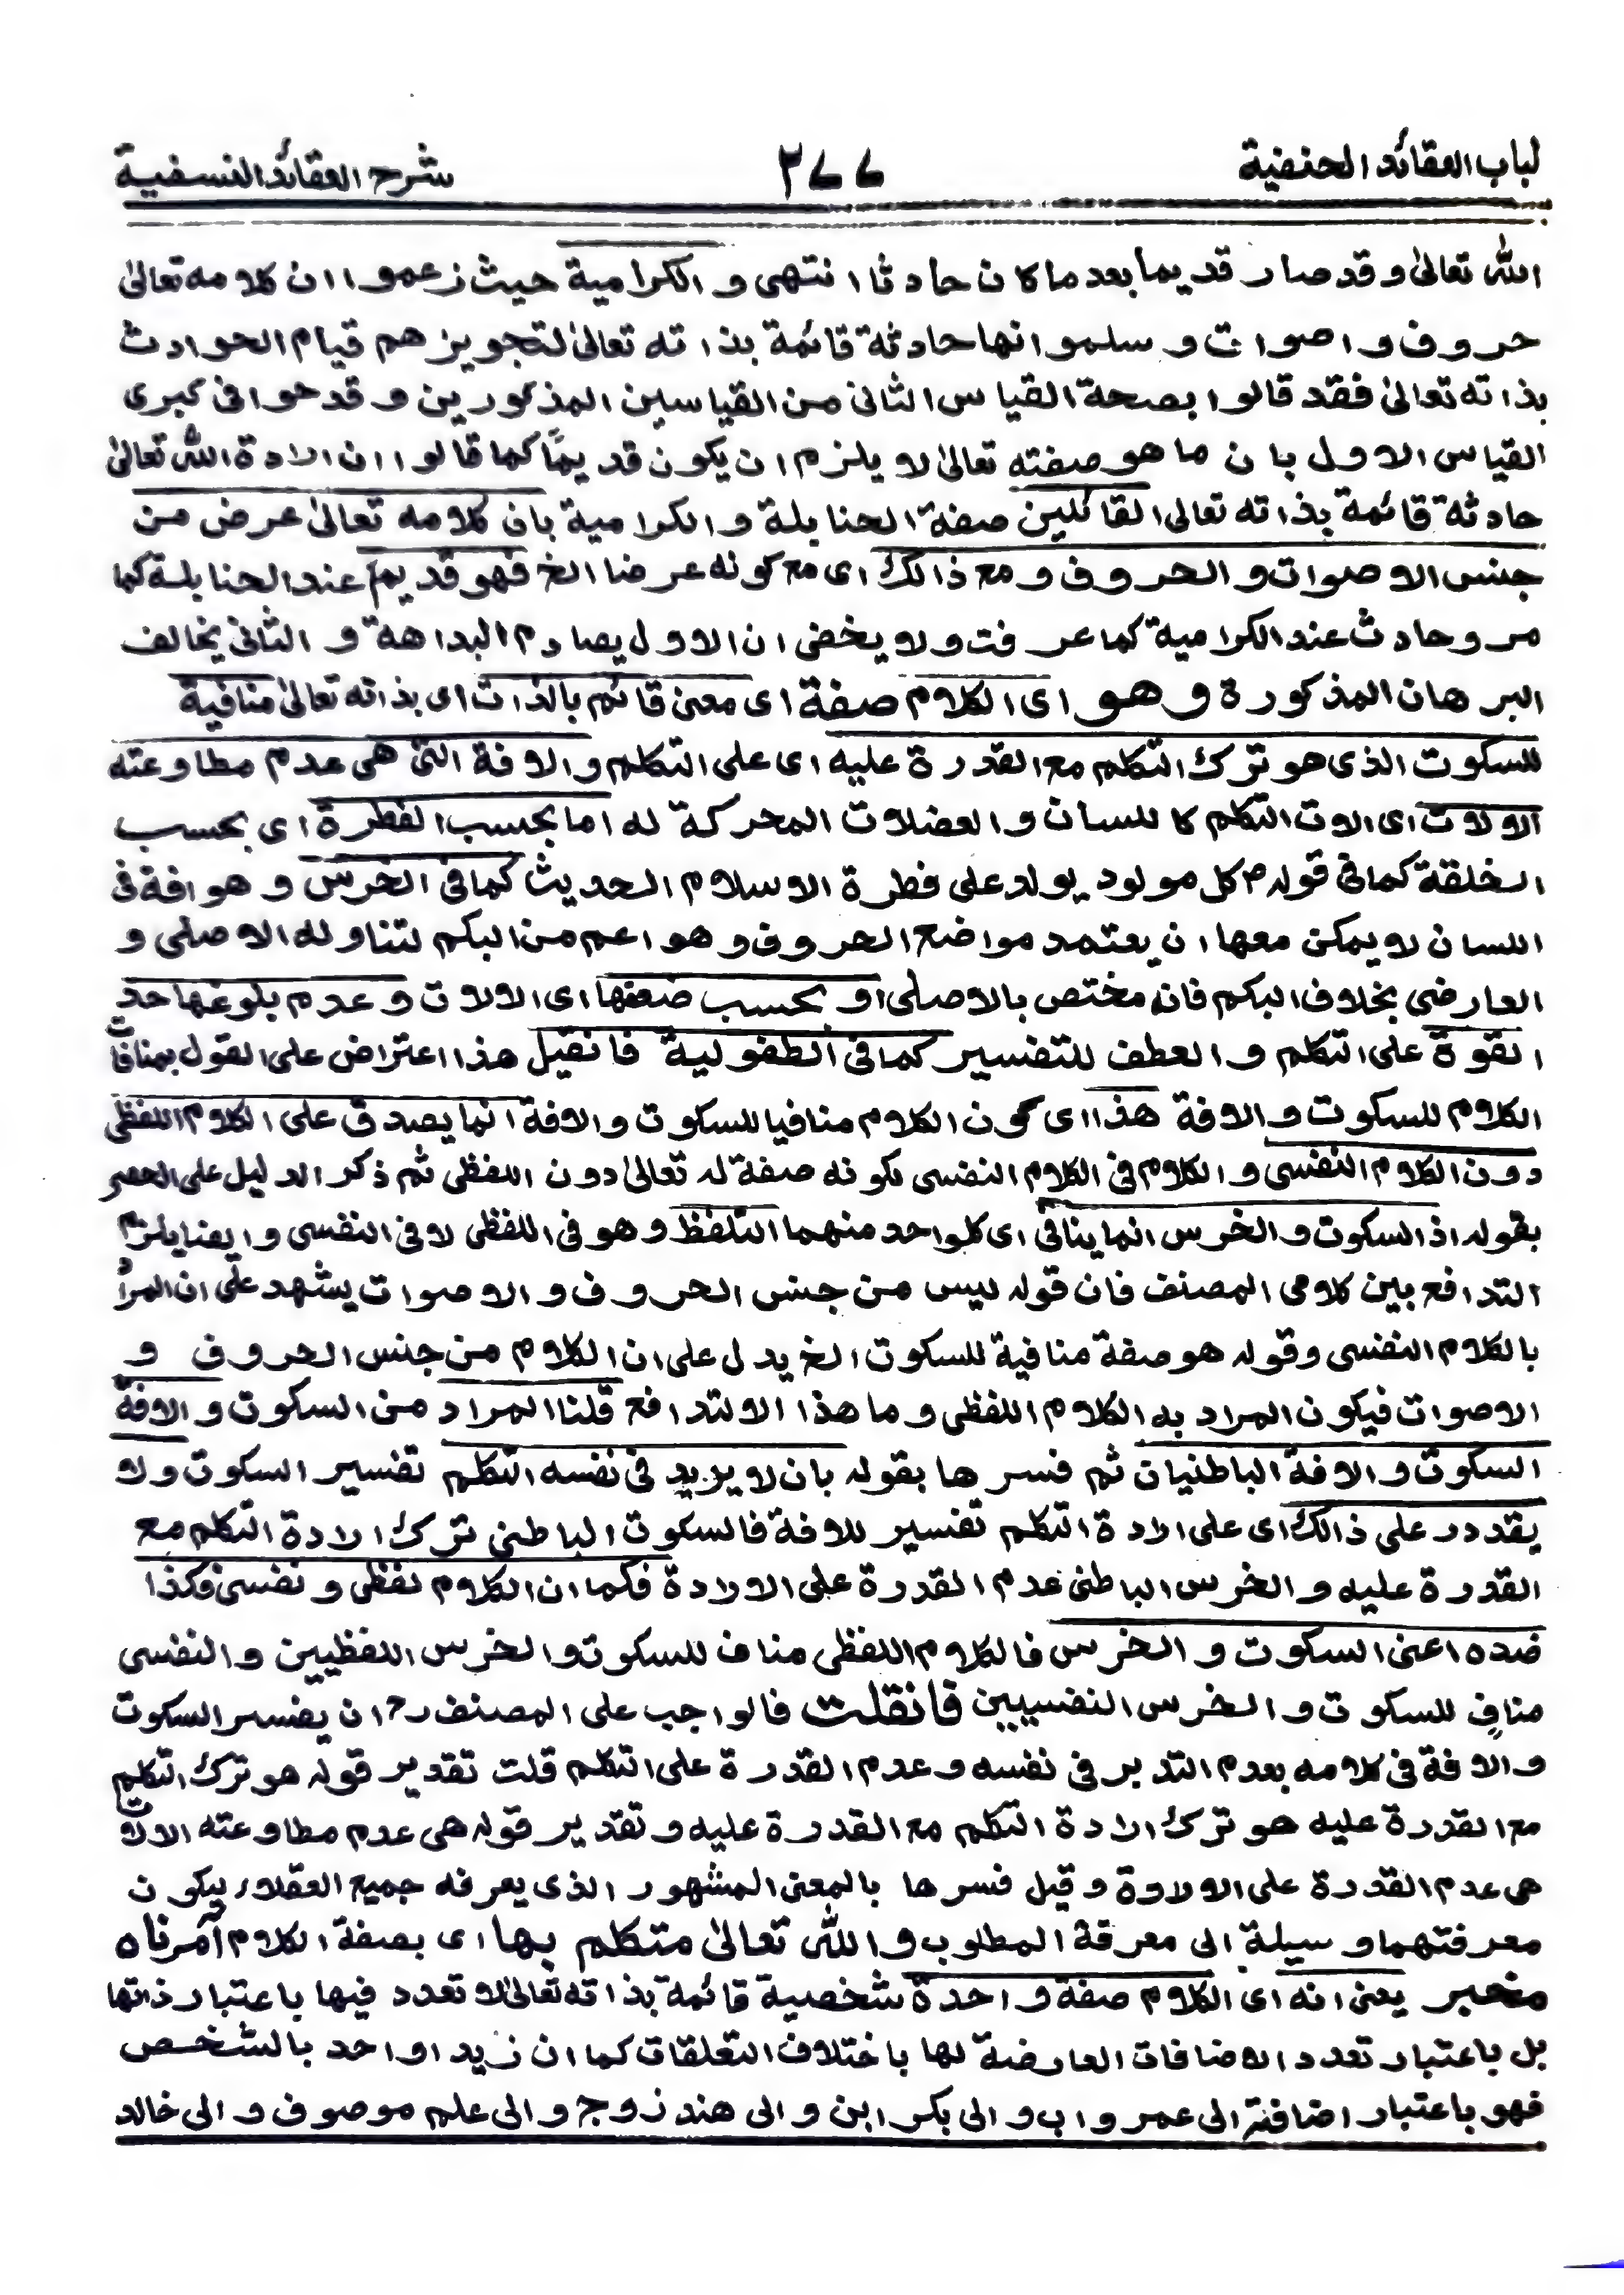 لباب العقائد الحنفية ٢٧٧ شرح العقائد النسفية
الله تعالیٰ و قد صار قديما بعد ما كان حادثا انتهى و الكرامية حيث زعموا ان كلامه تعالیٰ
حروف و اصوات و سلموا انها حادثة قائمة بذاته تعالیٰ لتجويزهم قيام الحوادث
بذاته تعالیٰ فقد قالوا بصحة القياس الثانى من القياسين المذكورين و قدحوا فى كبرى
القياس الاول بان ما هو صفته تعالیٰ لا يلزم ان يكون قديمًا كما قالوا ان ارادة الله تعالیٰ
حادثة قائمة بذاته تعالى القائلين صفة الحنابلة و الكرامية بان كلامه تعالیٰ عرض من
جنس الاصوات و الحروف و مع ذالك اى مع كونه عرضا الخ فهو قديم عند الحنابلة كما
مر و حادث عند الكرامية كما عرفت و لا يخفى ان الاول يصادم البداهة و الثانى يخالف
البرهان المذكورة و هو اى الكلام صفة اى معنى قائم بالذات اى بذاته تعالیٰ منافية
للسكوت الذى هو ترك التكلم مع القدرة عليه اى على التكلم و الافة التى هى عدم مطاوعته
الالات اى الات التكلم كاللسان و العضلات المحركة له اما بحسب الفطرة اى بحسب
الخلقة كما فى قوله ؐ كل مولود يولد على فطرة الاسلام الحديث كما فى الخرس و هو افة فى
اللسان لا يمكن معها ان يعتمد مواضع الحروف و هو اعم من البكم لتناوله الاصلى و
العارضى بخلاف البكم فانه مختص بالاصلى او بحسب ضعفها اى الالات و عدم بلوغها حد
القوة على التكلم و العطف للتفسير كما فى الطفولية فان قيل هذا اعتراض على القول بمنافات
الكلام للسكوت و الافة هذا اى كون الكلام منافيا للسكوت و الافة انما يصدق على الكلام اللفظى
دون الكلام النفسى و الكلام فى الكلام النفسى لكونه صفة له تعالیٰ دون اللفظى ثم ذكر الدليل على الحصر
بقوله اذ السكوت و الخرس انما ينافى اى كلواحد منهما التلفظ و هو فى اللفظى لا فى النفسى و ايضا يلزم
التدافع بين كلامى المصنف فان قوله ليس من جنس الحروف و الاصوات يشهد على ان المراد
بالكلام النفسى و قوله هو صفة منافية للسكوت الخ يدل على ان الكلام من جنس الحروف و
الاصوات فيكون المراد به الكلام اللفظى و ما هذا الا لتدافع قلنا المراد من السكوت و الافة
السكوت و الافة الباطنيان ثم فسرها بقوله بان لا يريد فى نفسه التكلم تفسير السكوت و لا
يقددر على ذالك اى على ارادة التكلم تفسير للافة فالسكوت الباطنى ترك ارادة التكلم مع
القدرة عليه و الخرس الباطنى عدم القدرة على الارادة فكما ان الكلام لفظى و نفسى فكذا
ضده اعنى السكوت و الخرس فالكلام اللفظى مناف للسكوت و الخرس اللفظيين و النفسى
منافٍ للسكوت و الخرس النفسيين فان قلت فالواجب على المصنف رح ان يفسر السكوت
و الافة فى كلامه بعدم التدبر فى نفسه و عدم القدرة على التكلم قلت تقدير قوله هو ترك التكلم
مع القدرة عليه هو ترك ارادة التكلم مع القدرة عليه و تقدير قوله هى عدم مطاوعته الالات
هى عدم القدرة على الارادة و قيل فسرها بالمعنى المشهور الذى يعرفه جميع العقلاء ليكون
معرفتهما وسيلة الى معرفة المطلوب و الله تعالیٰ متكلم بها اى بصفة الكلام آمر ناه
مخبر يعنى انه اى الكلام صفة واحدة شخصية قائمة بذاته تعالیٰ لا تعدد فيها باعتبار ذاتها
بل باعتبار تعدد الاضافات العارضة لها باختلاف التعلقات كما ان زيدا واحد بالشخص
فهو باعتبار اضافته الى عمرو اب و الى بكر ابن و الى هند زوج و الى علم موصوف و الى خالد